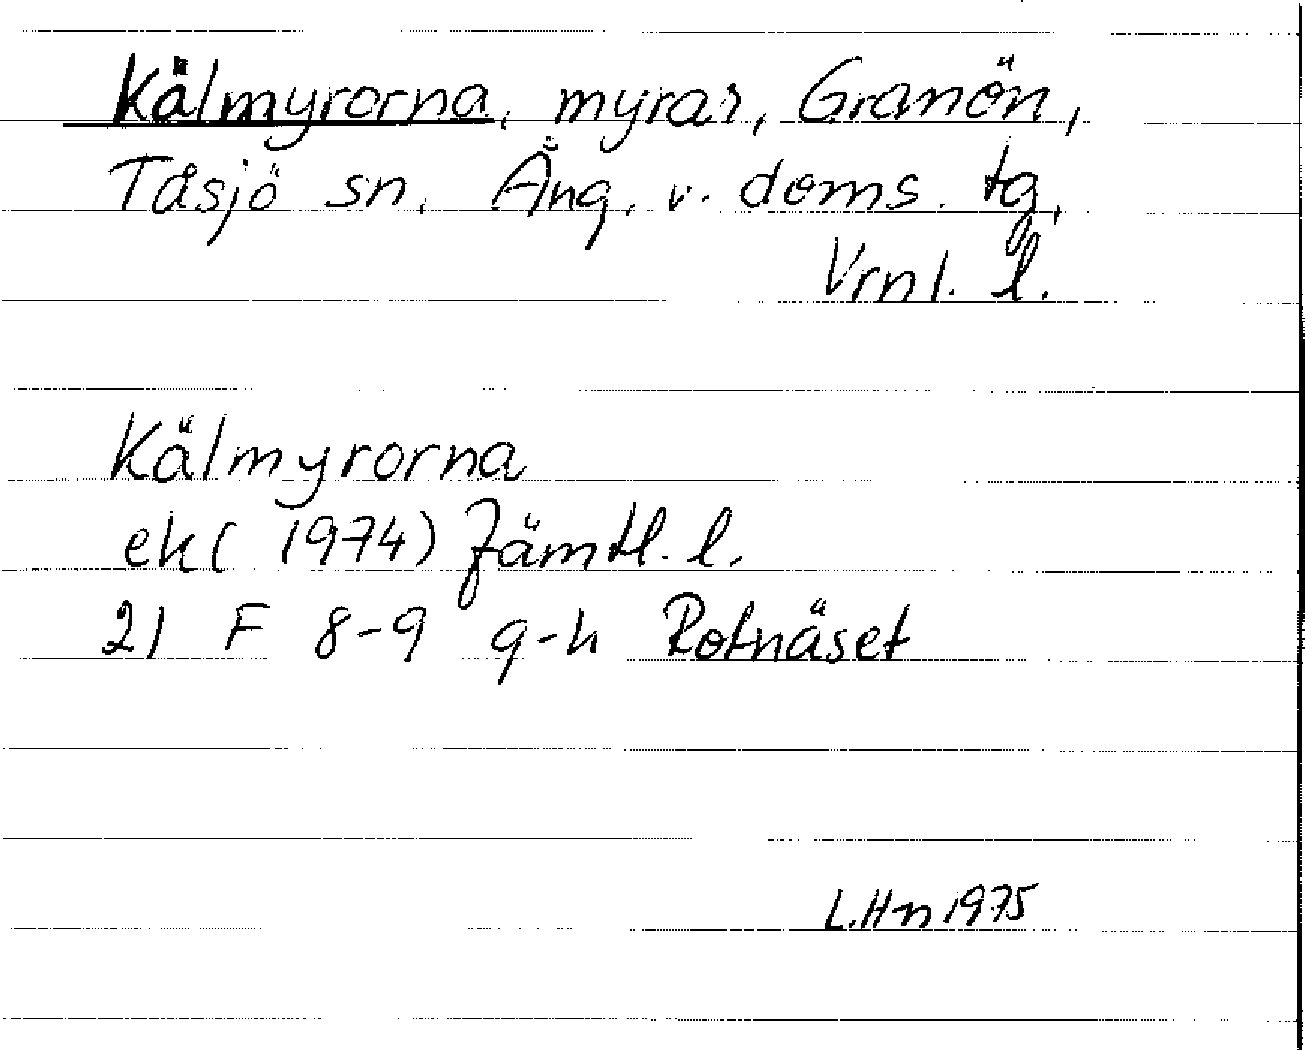 Kälmyrorna, myrar, Granön,
Tåsjö sn, Ång. v. doms. tg,
Vrnl. l.
Kälmyrorna
ek (1974) Jämtl. l.
21 F 8-9 g-h Rotnäset
L.Hn 1975